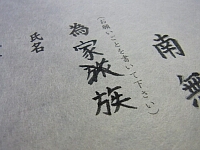 南無
(お願いごとを書いて下さい)
為家族
氏名